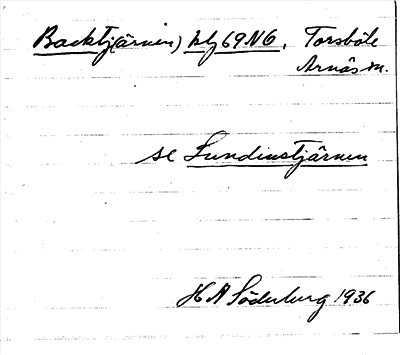 Backtj(ärnen) blj 69 NG, Torsböle
Arnäs sn.
se Lundinstjärnen
H A Söderberg 1936